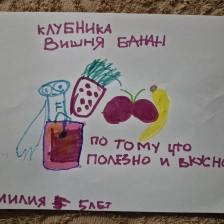 КЛУБНИКА
ВИШНЯ БАНАН
ПО ТОМУ ЧТО
ПОЛЕЗНО И ВКУСНО
МИЛИЯ 5 ЛЕТ